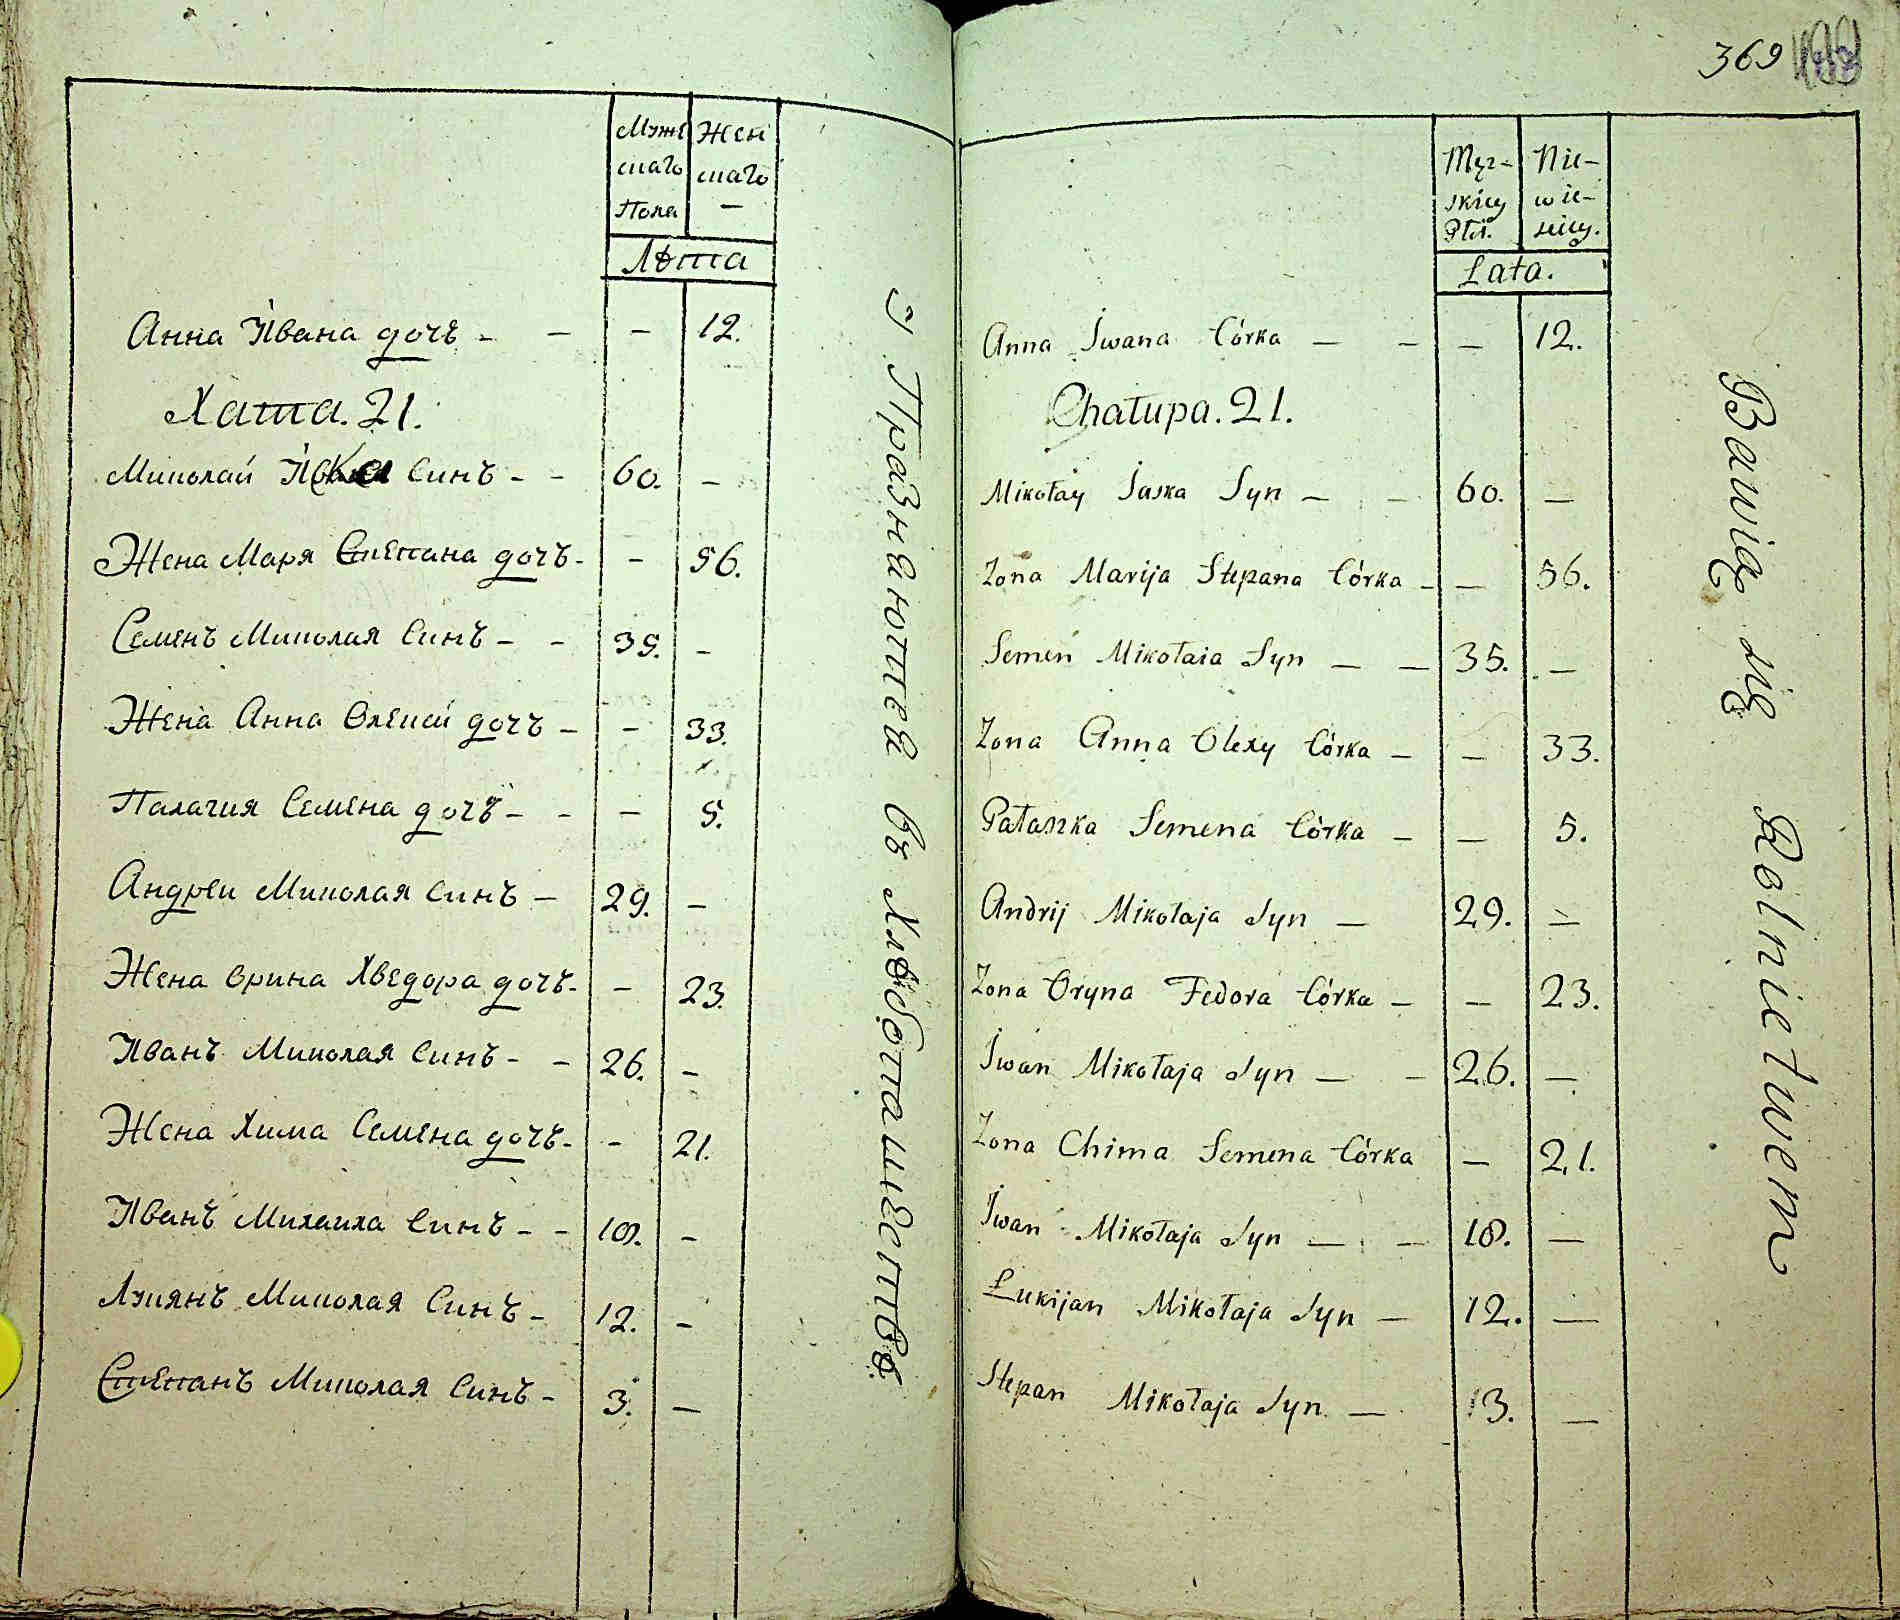 Муже Жен
скаго скаго
Пола —
Лѣта
Анна Ивана дочъ - — — 12.
Хата. 21.
Миколай Иська Синъ - - 60. —
Жена Маря Степана дочъ - — 56.
Семенъ Миколая Синъ - - 35. —
Жена Анна Олекси дочъ - — 33.
Палагия Семена дочъ - - — 5.
Андреи Миколая Синъ — 29. —
Жена Орина Хведора дочъ - — 23.
Иванъ Миколая Синъ - - 26. —
Жена Хима Семена дочъ - — 21.
Иванъ Михаила Синъ - - 18. —
Лукянъ Миколая Синъ - 12. —
Степанъ Миколая Синъ - 3. —
Празнаются въ Хлѣбопашествѣ
369
Męz- Nie-
skiey wie-
Płci. sciey.
Lata.
Anna Iwana Córka — — — 12.
Chałupa. 21.
Mikołay Jaska Syn — — 60. —
Zona Marija Stepana Córka — — 56.
Semen Mikołaia Syn — — 35. —
Zona Anna Olexy Córka — — 33.
Pałaszka Semena Córka — — 5.
Andrij Mikołaja Syn — 29. —
Zona Oryna Fedora Córka — — 23.
Iwan Mikołaja Syn — — 26. —
Zona Chima Semena Córka — 21.
Iwan Mikołaja Syn — — 18. —
Łukijan Mikołaja Syn — 12. —
Stepan Mikołaja Syn — 13. —
Bawią się Rolnictwem